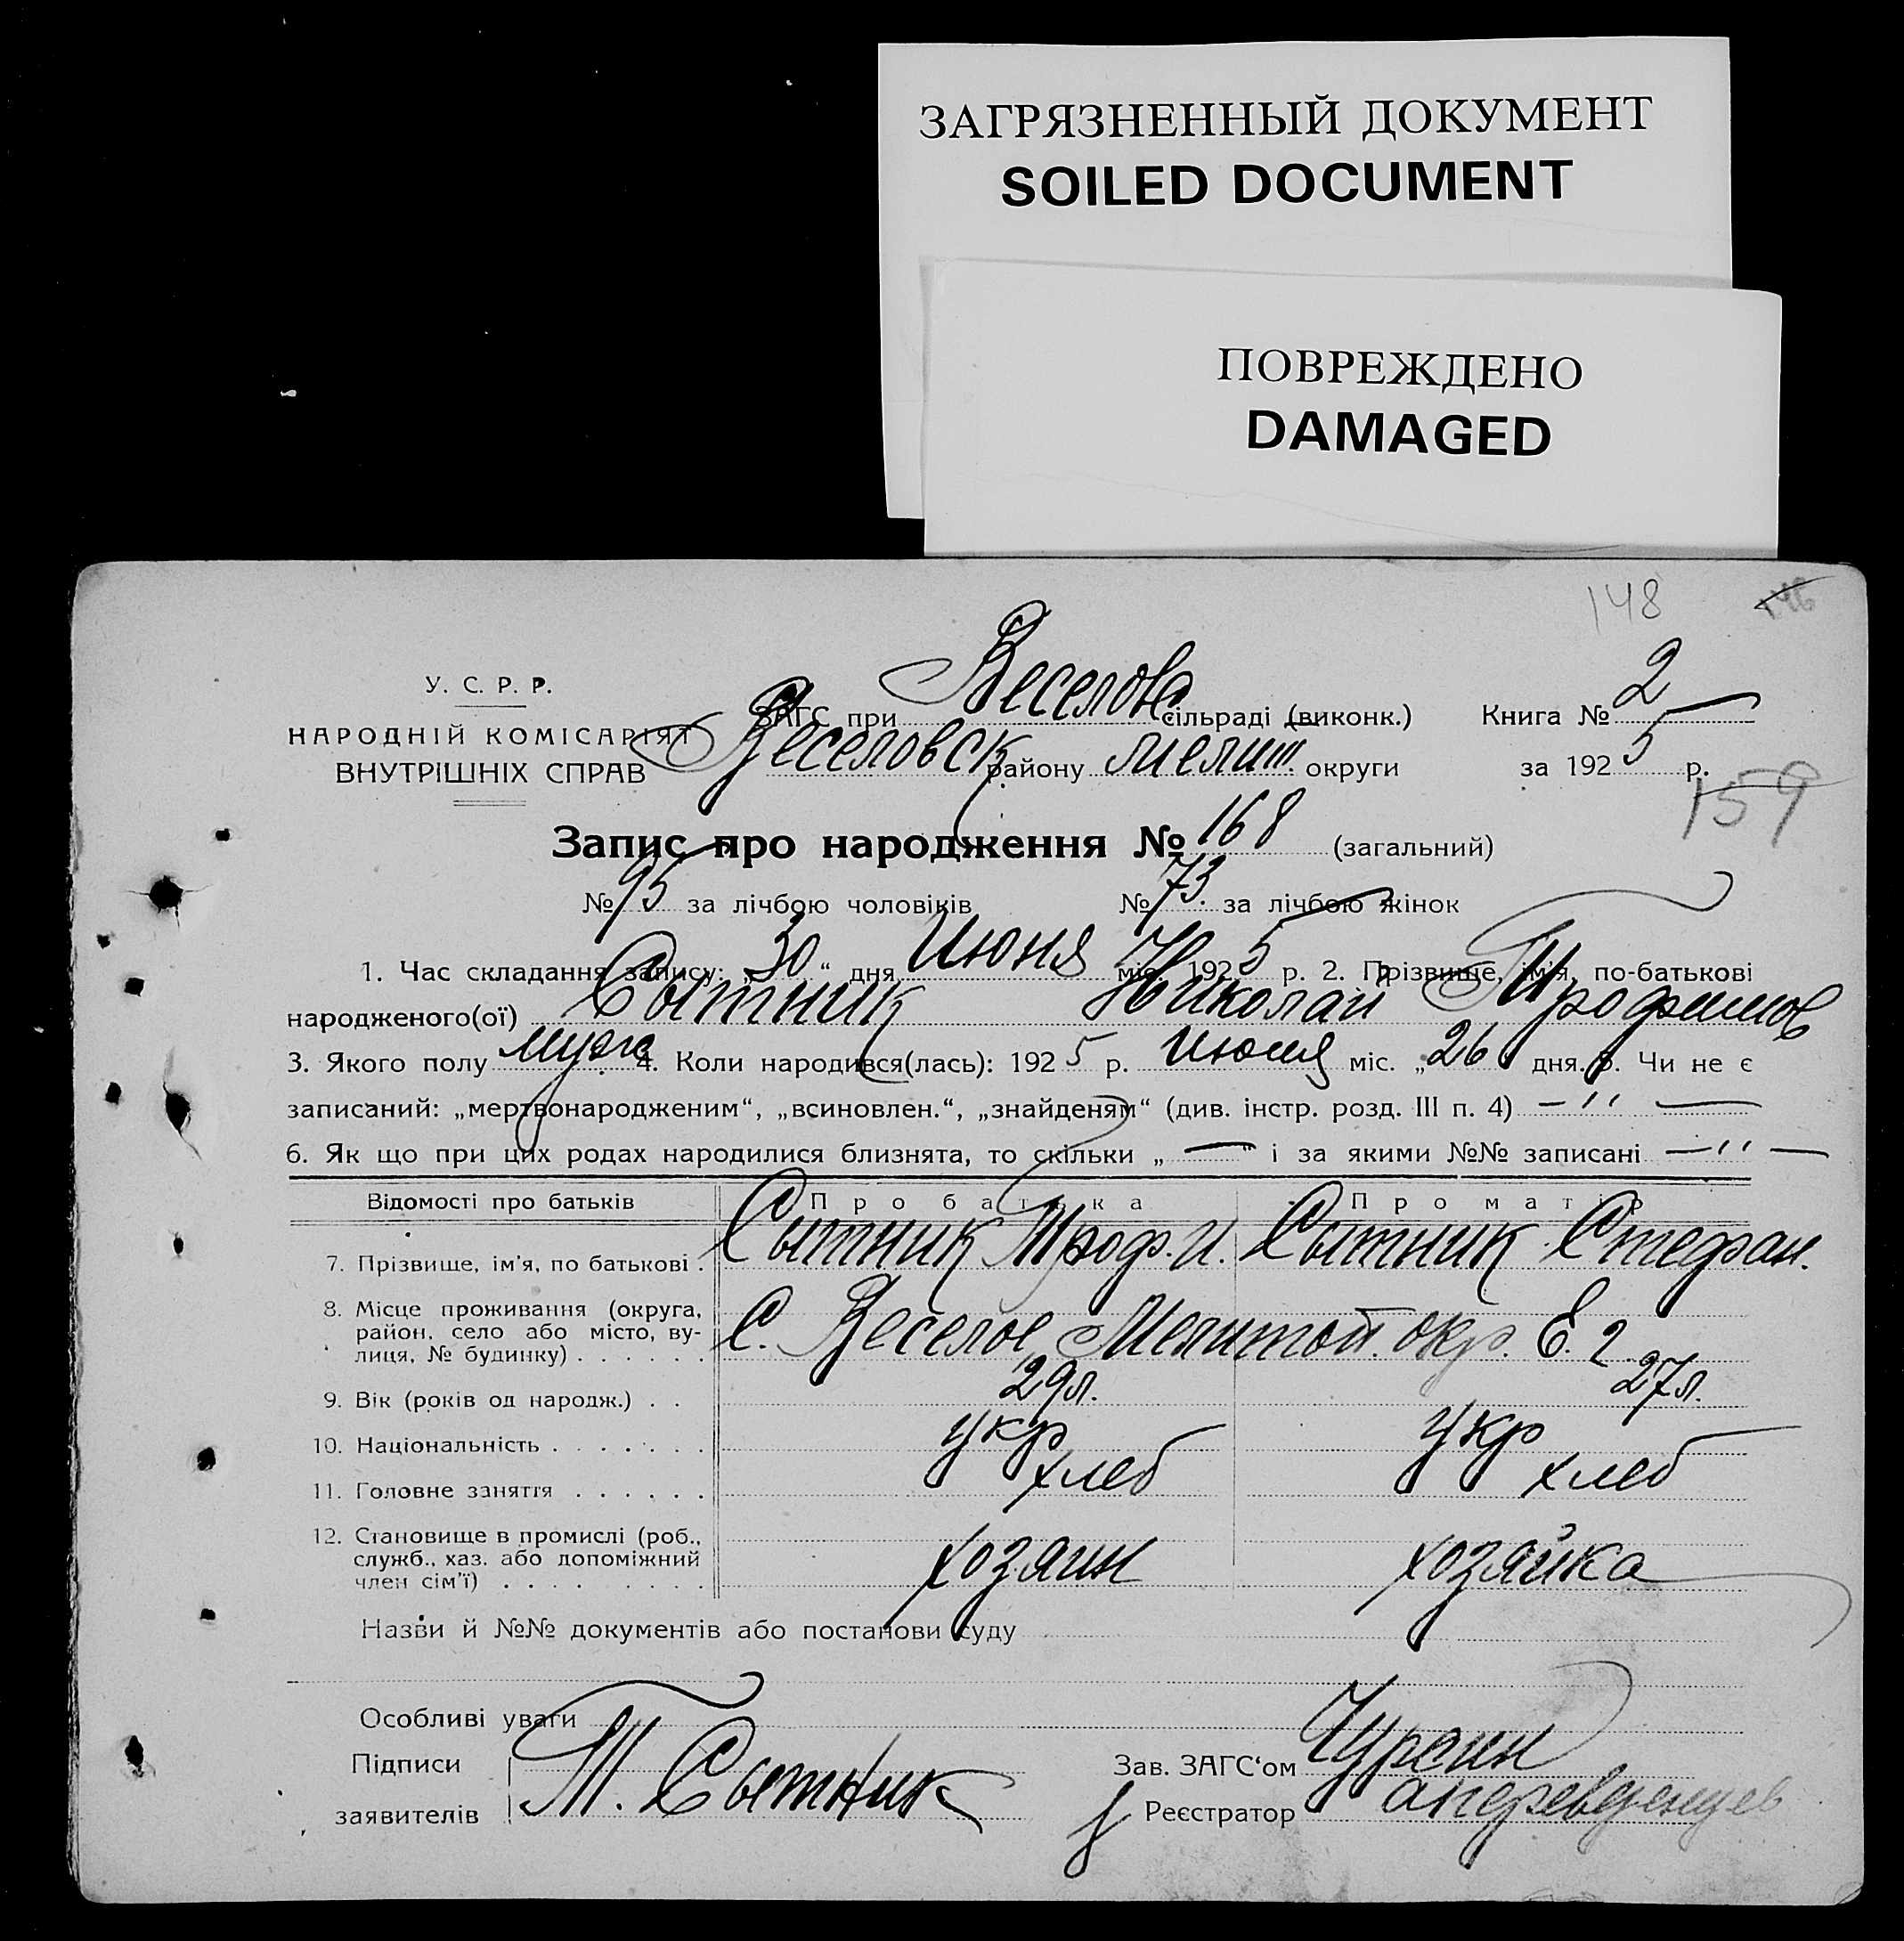 ЗАГРЯЗНЕННЫЙ ДОКУМЕНТ
SOILED DOCUMENT
ПОВРЕЖДЕНО
DAMAGED
148
У. С. Р. Р.
НАРОДНІЙ КОМІСАРІЯТ
ВНУТРІШНІХ СПРАВ
ЗАГС при Веселовс сільраді (виконк.) Книга № 2
Веселовск району Мелит округи за 1925 р.
159
Запис про народження № 168 (загальний)
№ 95 за лічбою чоловіків № 73. за лічбою жінок
1. Час складання запису: „30“ дня Июня міс. 1925 р. 2. Прізвище, ім'я, по-батькові
народженого(ої) Сытник Николай Трофимов
3. Якого полу муж. 4. Коли народився(лась): 1925 р. Июня міс. „26 дня. 5. Чи не є
записаний: „мертвонародженим“, „всиновлен.“, „знайденям“ (див. інстр. розд. III п. 4) — ״ —
6. Як що при цих родах народилися близнята, то скільки „ — “ і за якими №№ записані — ״ —
Відомості про батьків Про батька Про матір
7. Прізвище, ім'я, по батькові . Сытник Троф. И. Сытник Стефан.
8. Місце проживання (округа, район, село або місто, ву-
лиця, № будинку) . . . . . . С. Веселое Мелитоп. окр. Е. 2.
9. Вік (років од народж.) . . 29л. 27л.
10. Національність . . . . . . . укр укр
11. Головне заняття . . . . . . хлеб хлеб
12. Становище в промислі (роб.,
служб., хаз. або допоміжний
член сім'ї) . . . . . . . . . хозяин хозяйка
Назви й №№ документів або постанови суду
Особливі уваги
Підписи
заявителів Т. Сытник
Зав. ЗАГС‘ом Чурсин
Реєстратор